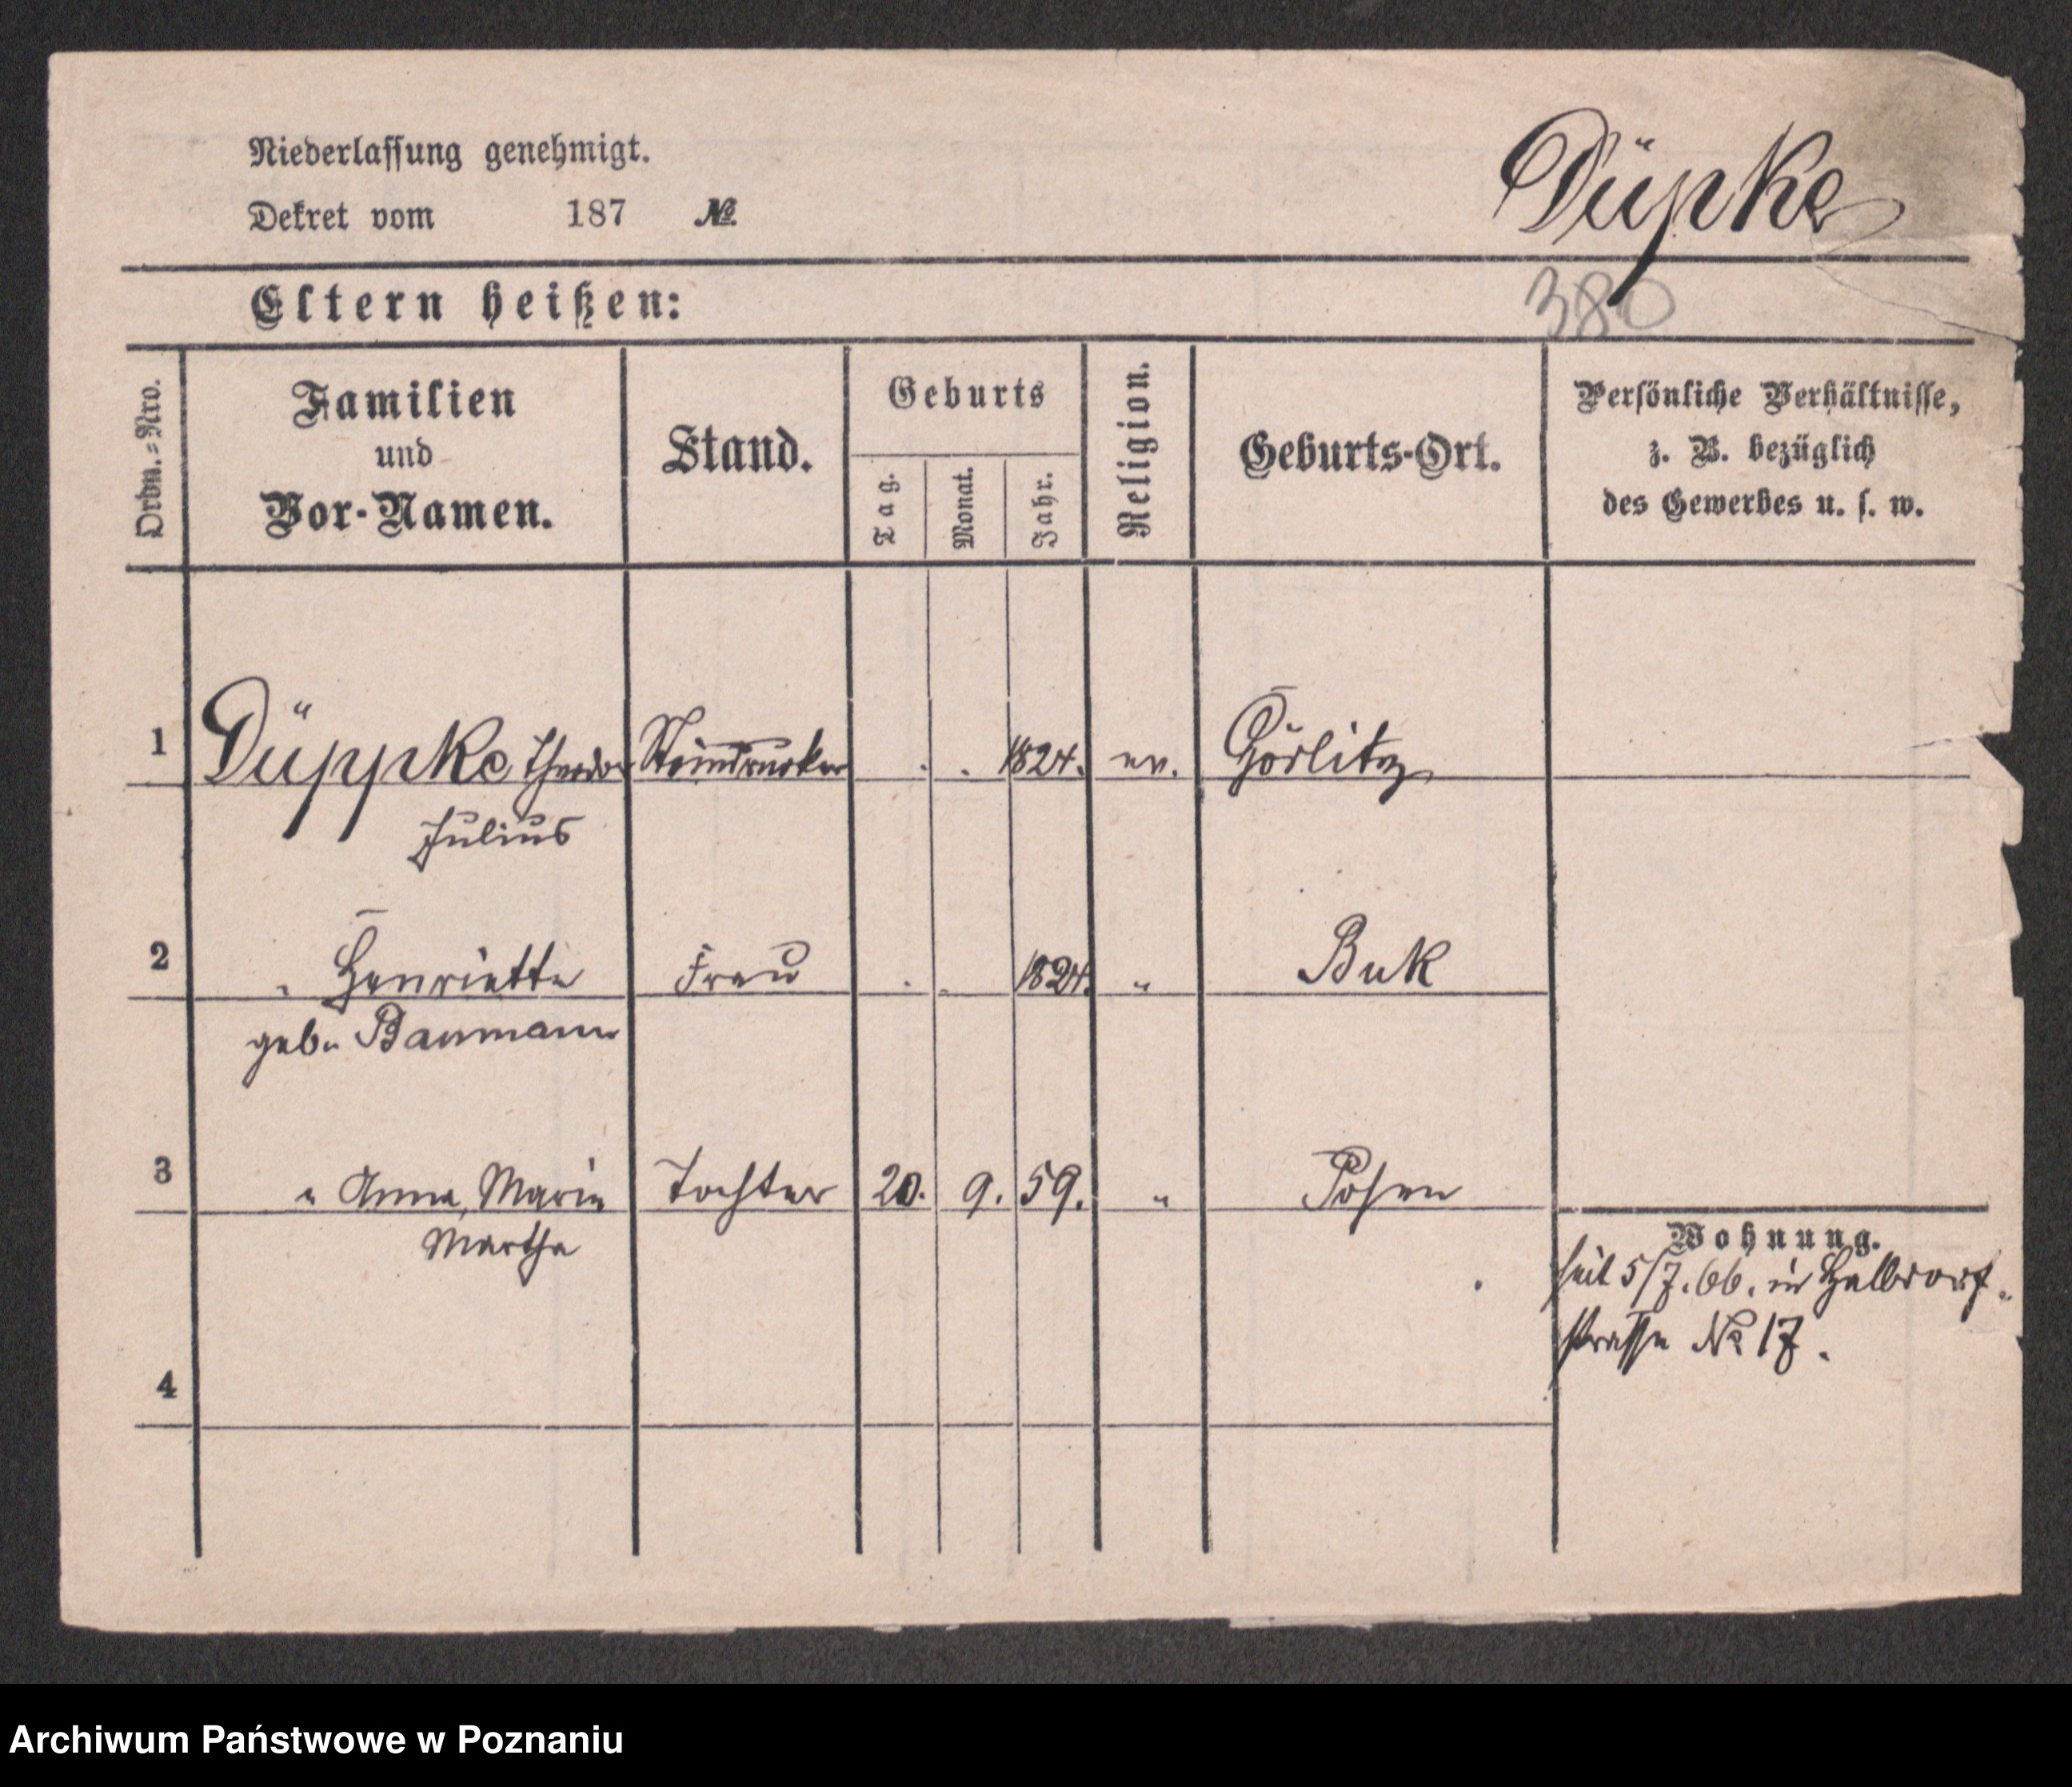 Niederlassung genehmigt.
Düpke
Dekret vom 187 №
Eltern heißen:
380
Ordn.-Nro.
Familien
und
Vor-Namen.
Stand.
Geburts
Tag.
Monat.
Jahr.
Religion.
Geburts-Ort.
Persönliche Verhältnisse,
z. B. bezüglich
des Gewerbes u. s. w.
1 Düppke Theodor Steindrucker . . 1824. ev. Görlitz
Julius
2 " Henriette Frau . . 1824. " Buk
geb. Baumann
3 " Anna, Marie Tochter 20. 9. 59. " Posen
Martha
Wohnung.
seit 5/7. 66. in Halbdorf-
strasse № 17.
4
Archiwum Państwowe w Poznaniu